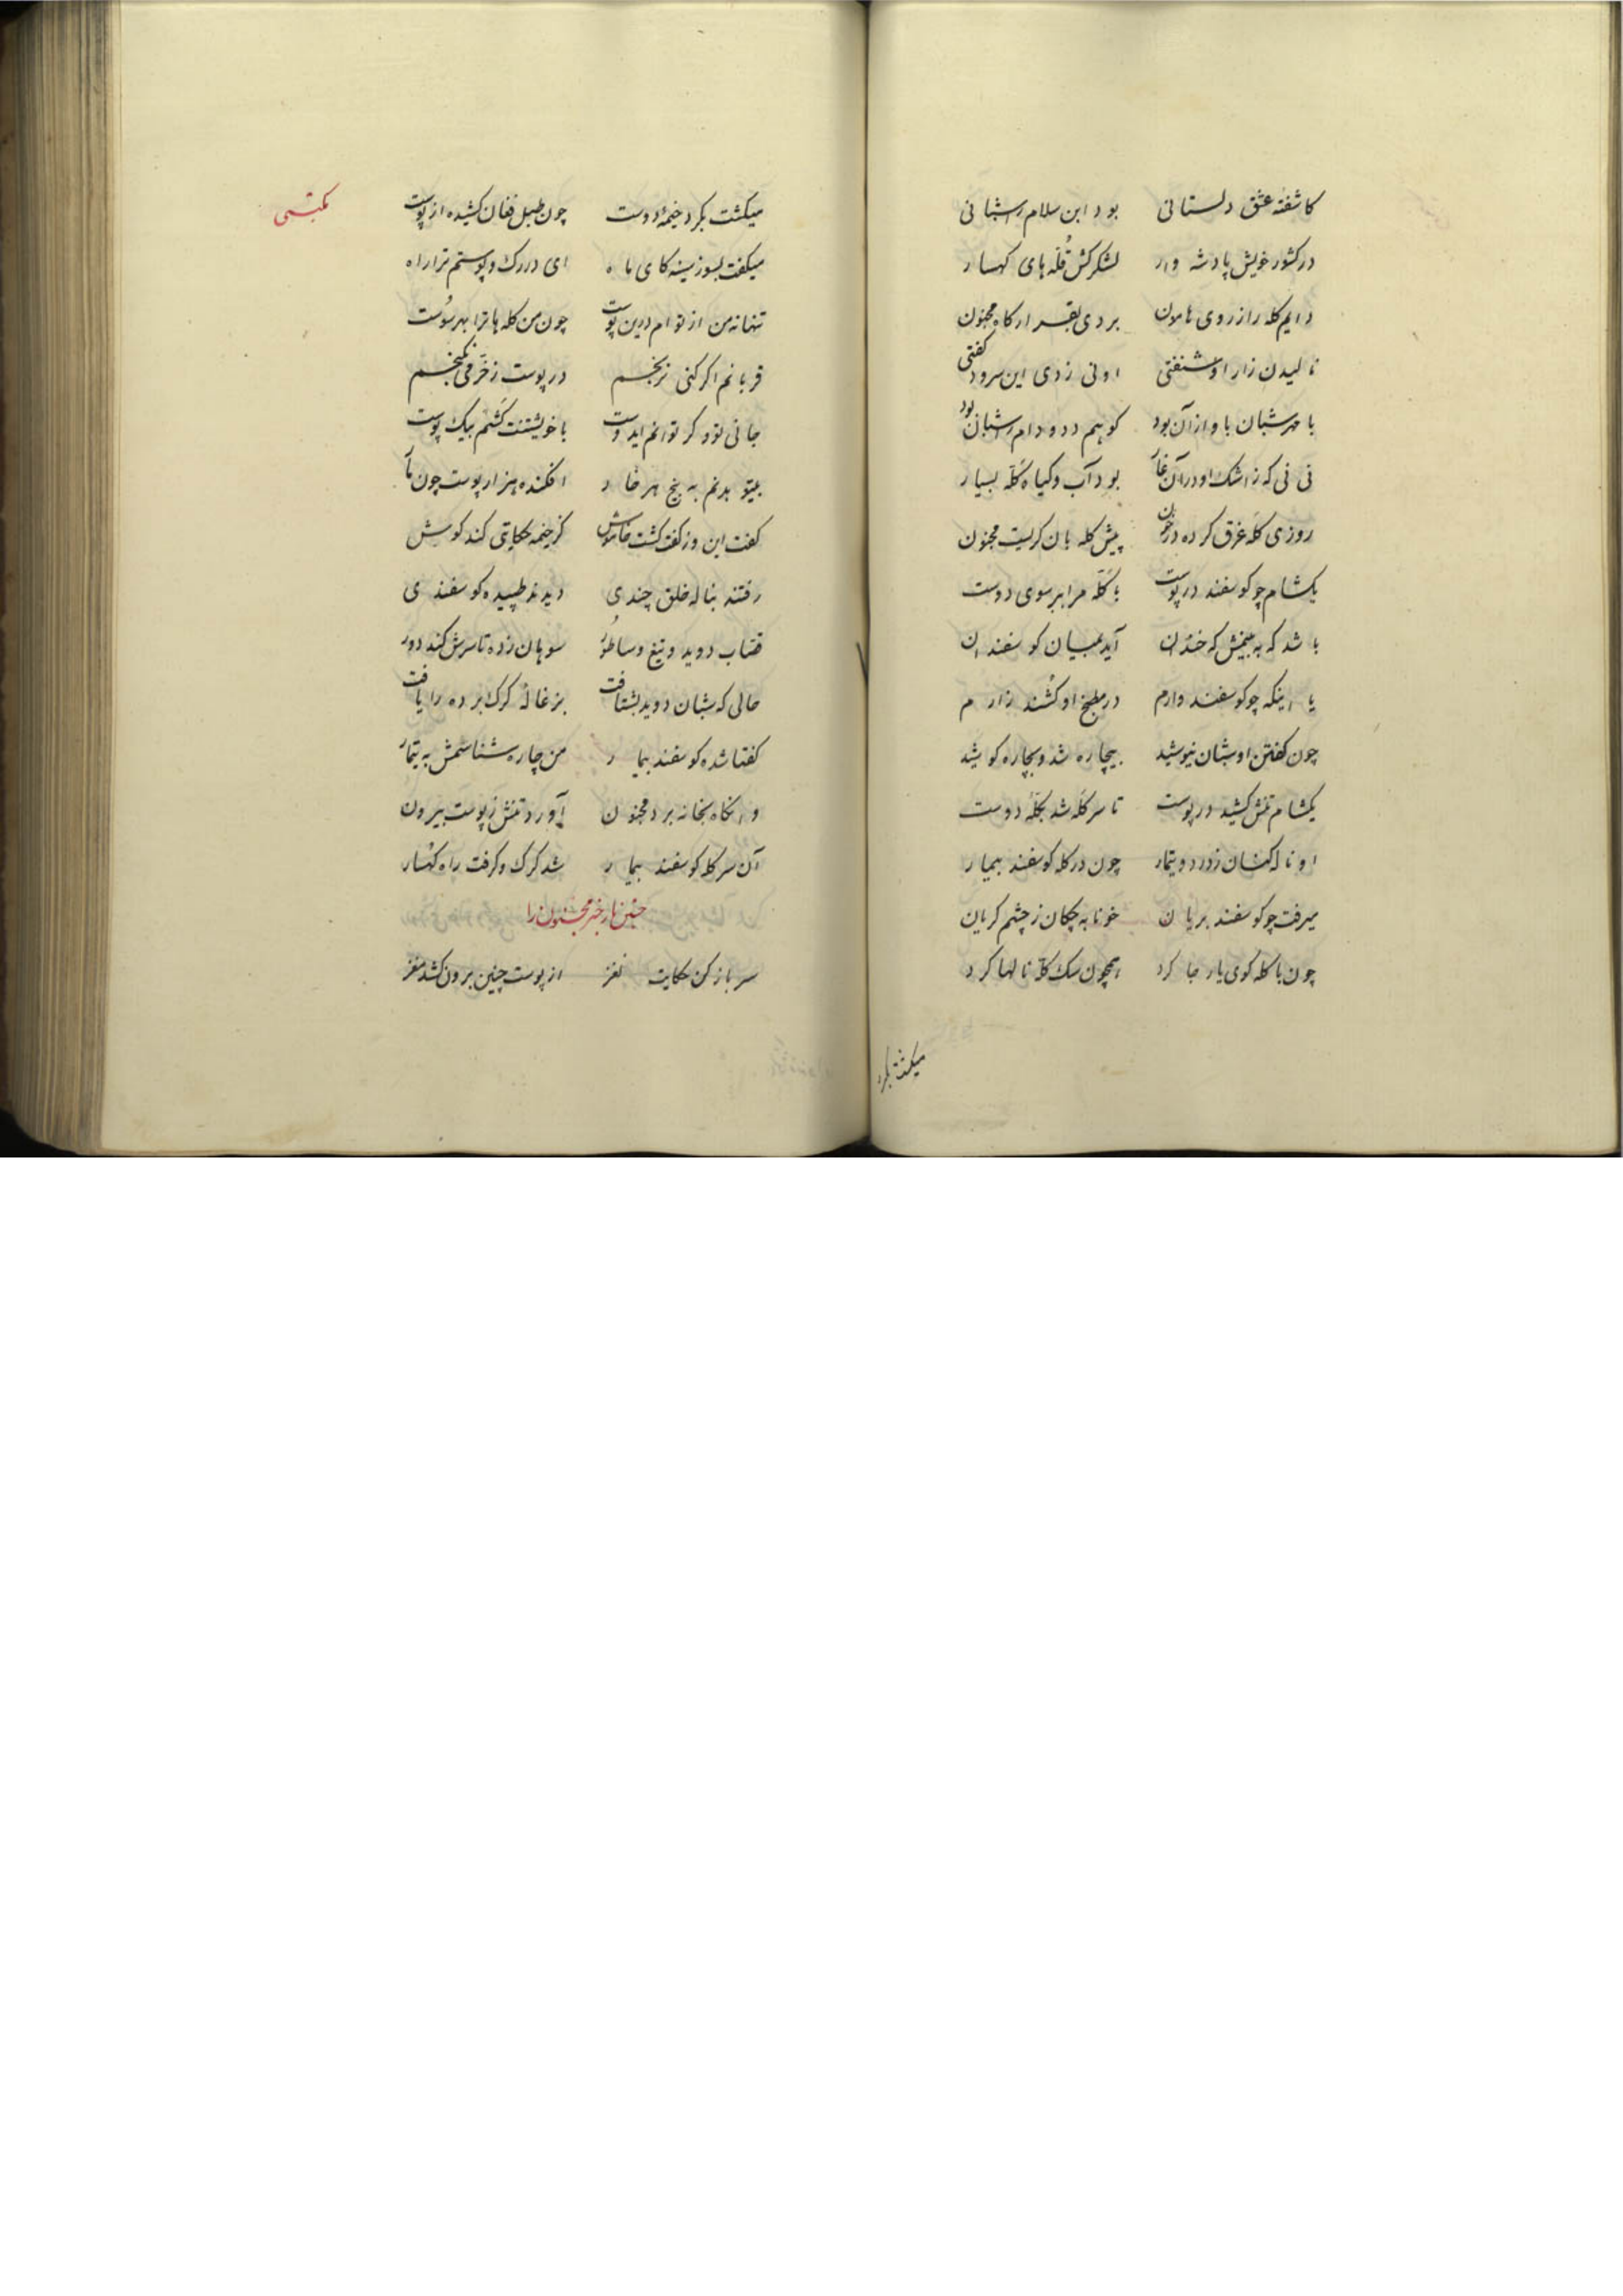 کاشفته عشق دلستانی بود ابن سلام را شبانی
در کشور خویش پادشه وار لشکر کش قله های کهسار
دایم کله را ز روی هامون بردی بقرارکاه مجنون
نالیدن زار او شنفتی او نی زدی این سرود کفتی
با مهر شبان باو از آن بود کو هم دد و دام را شبان بود
نی نی که ز اشک او در آن غار بود آب و کیاه کله بسیار
روزی کله غرق کرده در خون پیش کله بان کریست مجنون
یکشام چو کوسفند در پوست با کله مرا ببر سوی دوست
باشد که به بینمش که خندان آید بمیان کوسفندان
یا اینکه چو کوسفند وارم در مطبخ او کشند زارم
چون کفتن او شبان نیوشید بیچاره شد و بچاره کوشید
یکشام تنش کشید در پوست تا سر کله شد بکله دوست
او ناله کنان ز درد و تیمار چون در کله کوسفند بیمار
میرفت چو کوسفند بریان خونابه چکان ز چشم کریان
چون با کله کوی یار جا کرد همچون سک کله نالها کرد
میکشت بکرد
مکتبی
میکشت بکرد خیمه دوست چون طبل فغان کشیده از پوست
میکفت بسوز سینه کای ماه ای در رک و پوستم ترا راه
تنها نه من از توام درین پوست چون من کله ها ترا بهر سوست
قربانم اکر کنی نرنجم در پوست ز خرمی نکنجم
جانی تو و کر توانم ایدوست با خویشتنت کشم بیک پوست
بیتو بدنم به پنج هر خار افکنده هزار پوست چون مار
کفت این و ز کفت کشت خاموش کز خیمه حکایتی کند کوش
رفتند بناله خلق چندی دیدند طپیده کوسفندی
قصاب دوید و تیغ و ساطور سوهان زده تا سرش کند دور
حالی که شبان دوید بشتافت بزغاله کرک برده را یافت
کفتا شده کوسفند بیمار من چاره شناسمش به تیمار
وانکاه بخانه برد مجنون آورد تنش ز پوست بیرون
آن سر کله کوسفند بیمار شد کرک و کرفت راه کهسار
مجنون را
سر باز کن حکایت نغز از پوست چنین برون کشد مغز